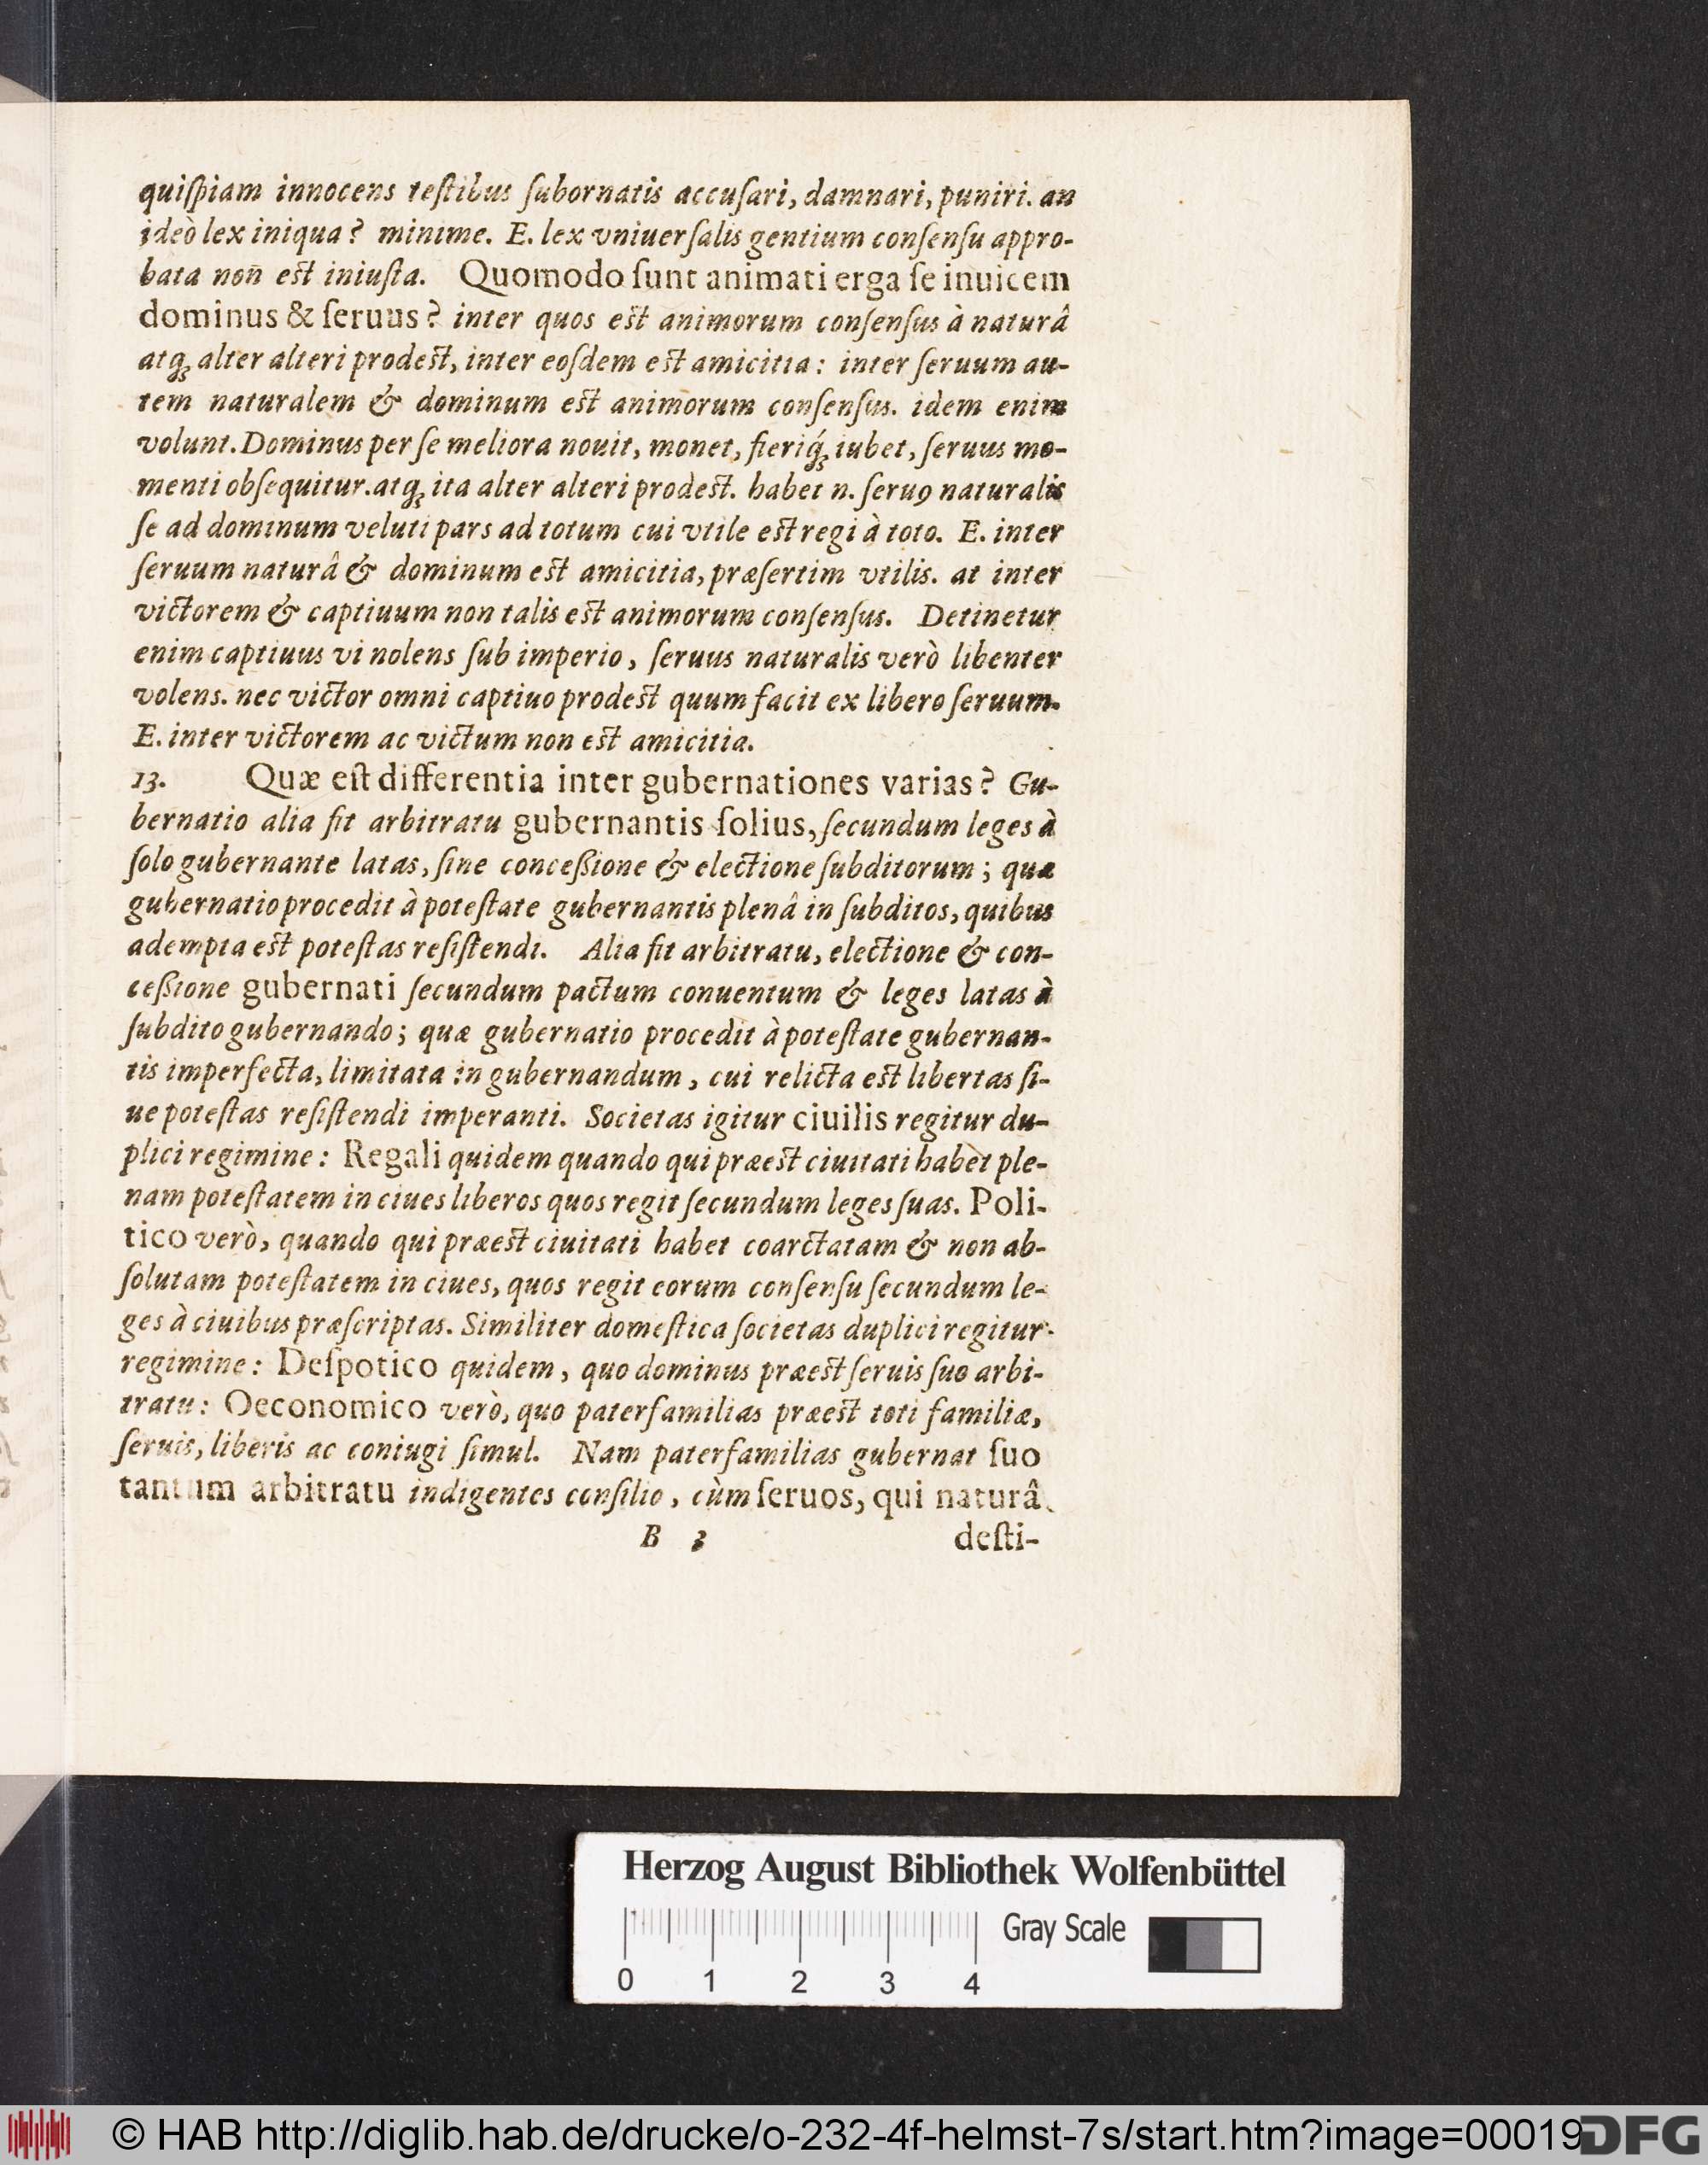 quiſpiam innocens teſtibus ſubornatis accuſari, damnari, puniri. an
ideò lex iniqua? minime. E. lex vniuerſalis gentium conſenſu appro-
bata non est iniuſta. Quomodo ſunt animati erga ſe inuicem
dominus & ſeruus? inter quos est animorum conſenſus à naturâ
atq́ꝫ alter alteri prodest, inter eoſdem est amicitia: inter ſeruum au-
tem naturalem & dominum est animorum conſenſus. idem enim
volunt. Dominus per ſe meliora nouit, monet, fieriq́ꝫ iubet, ſeruus mo-
menti obſequitur. atqꝫ ita alter alteri prodest. habet n. ſeruꝰ naturalis
ſe ad dominum veluti pars ad totum cui vtile est regi à toto. E. inter
ſeruum naturâ & dominum est amicitia, præſertim vtilis. at inter
victorem & captiuum non talis est animorum conſenſus. Detinetur
enim captiuus vi nolens ſub imperio, ſeruus naturalis verò libenter
volens. nec victor omni captiuo prodest quum facit ex libero ſeruum.
E. inter victorem ac victum non est amicitia.
13. Quæ eſt differentia inter gubernationes varias? Gu-
bernatio alia fit arbitratu gubernantis ſolius, ſecundum leges à
ſolo gubernante latas, ſine conceßione & electione ſubditorum; quæ
gubernatio procedit à poteſtate gubernantis plenâ in ſubditos, quibus
adempta est poteſtas reſiſtendi. Alia fit arbitratu, electione & con-
ceßione gubernati ſecundum pactum conuentum & leges latas à
ſubdito gubernando; quæ gubernatio procedit à poteſtate gubernan-
tis imperfecta, limitata in gubernandum, cui relicta est libertas ſi-
ue poteſtas reſiſtendi imperanti. Societas igitur ciuilis regitur du-
plici regimine: Regali quidem quando qui præest ciuitati habet ple-
nam poteſtatem in ciues liberos quos regit ſecundum leges ſuas. Poli-
tico verò, quando qui præest ciuitati habet coarctatam & non ab-
ſolutam poteſtatem in ciues, quos regit eorum conſenſu ſecundum le-
ges à ciuibus præſcriptas. Similiter domeſtica ſocietas duplici regitur
regimine: Deſpotico quidem, quo dominus præest ſeruis ſuo arbi-
tratu: Oeconomico verò, quo paterfamilias præest toti familiæ,
ſeruis, liberis ac coniugi ſimul. Nam paterfamilias gubernat ſuo
tantum arbitratu indigentes conſilio, cùm ſeruos, qui naturâ
B 3 deſti-
Herzog August Bibliothek Wolfenbüttel
Gray Scale
0 1 2 3 4
© HAB http://diglib.hab.de/drucke/o-232-4f-helmst-7s/start.htm?image=00019
DFG